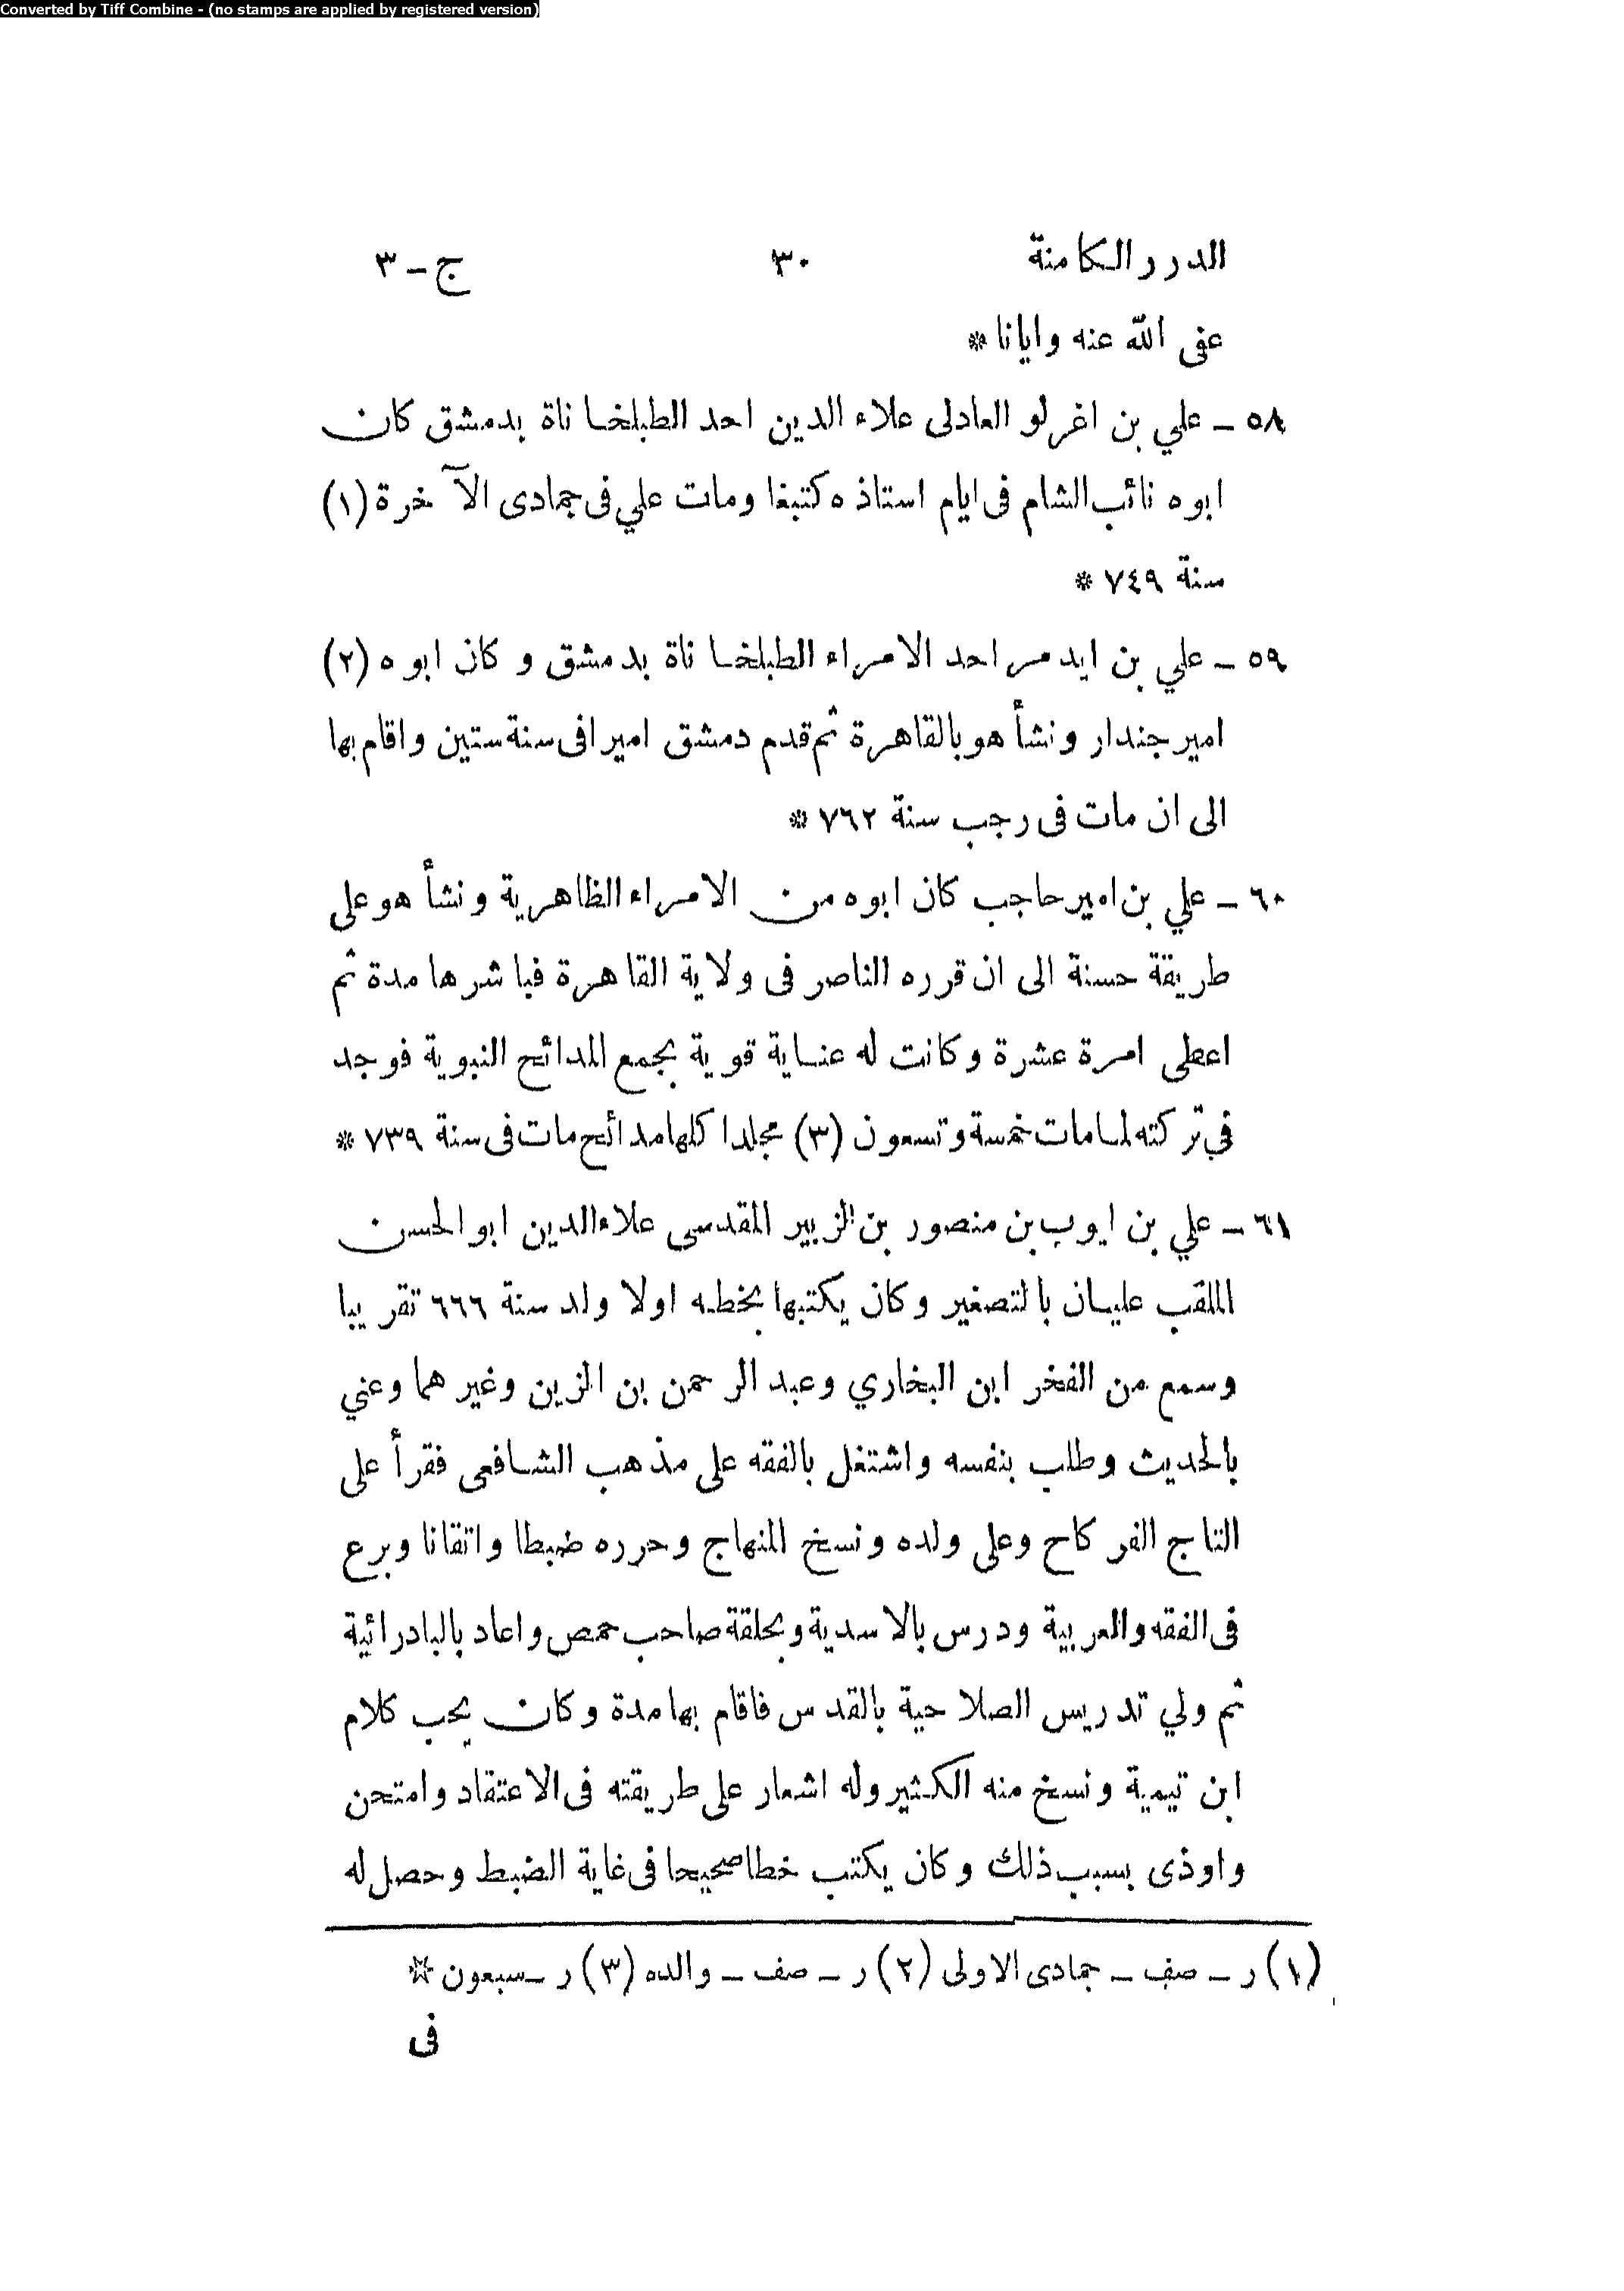 Converted by Tiff Combine - (no stamps are applied by registered version)
الدرر الكامنة ٣٠ ج - ٣
عفى الله عنه وايانا *
٥٨ - علي بن اغرلو العادلى علاء الدين احد الطبلخاناة بدمشق كان
ابوه نائب الشام فى ايام استاذه كتبغا ومات علي فى جمادى الآخرة (١)
سنة ٧٤٩ *
٥٩ - علي بن ايدمر احد الامراء الطبلخاناة بدمشق وكان ابوه (٢)
امير جندار ونشأ هو بالقاهرة ثم قدم دمشق اميرا فى سنة ستين واقام بها
الى ان مات فى رجب سنة ٧٦٢ *
٦٠ - علي بن امير حاجب كان ابوه من الامراء الظاهرية ونشأ هو على
طريقة حسنة الى ان قرره الناصر فى ولاية القاهرة فباشرها مدة ثم
اعطى امرة عشرة وكانت له عناية قوية بجمع المدائح النبوية فوجد
في تركته لما مات خمسة وتسعون (٣) مجلدا كلها مدائح مات فى سنة ٧٣٩ *
٦١ - علي بن ايوب بن منصور بن الزبير المقدسى علاء الدين ابو الحسن
الملقب عليان بالتصغير وكان يكتبها بخطه اولا ولد سنة ٦٦٦ تقريبا
وسمع من الفخر ابن البخاري وعبد الرحمن بن الزين وغيرهما وعني
بالحديث وطلب بنفسه واشتغل بالفقه على مذهب الشافعى فقرأ على
التاج الفركاح وعلى ولده ونسخ المنهاج وحرره ضبطا واتقانا وبرع
فى الفقه والعربية ودرس بالاسدية وبحلقة صاحب حمص واعاد بالبادرائية
ثم ولي تدريس الصلاحية بالقدس فاقام بها مدة وكان يحب كلام
ابن تيمية ونسخ منه الكثير وله اشعار على طريقته فى الاعتقاد وامتحن
واوذى بسبب ذلك وكان يكتب خطا صحيحا فى غاية الضبط وحصل له
(١) ر - صف - جمادى الاولى (٢) ر - صف - والده (٣) ر - سبعون ☆
فى